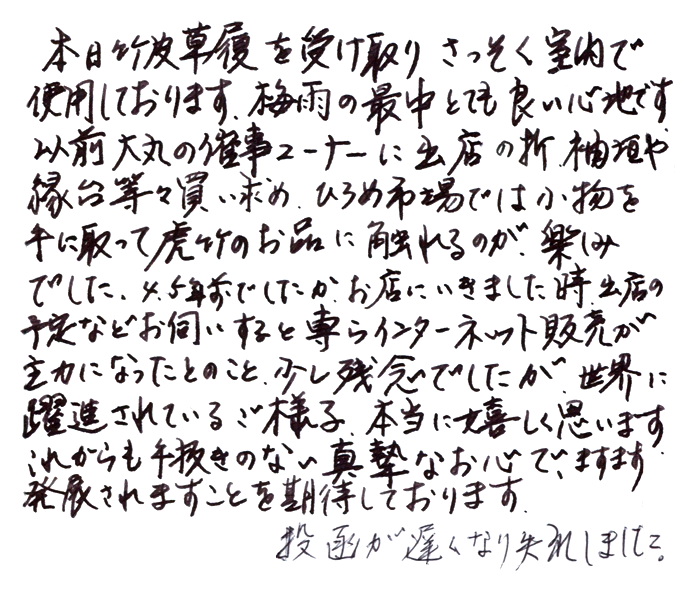 本日竹皮草履を受け取りさっそく室内で
使用しております。梅雨の最中とても良い心地です
以前大丸の催事コーナーに出店の折、袖垣や
縁台等々買い求め、ひろめ市場では小物を
手に取って虎竹のお品に触れるのが、楽しみ
でした。4、5年前でしたか、お店にいきました時、出店の
予定などお伺いすると専らインターネット販売が
主力になったとのこと、少し残念でしたが、世界に
躍進されているご様子、本当に嬉しく思います
これからも手抜きのない真摯なお心で、ますます
発展されますことを期待しております。
投函が遅くなり失礼しました。